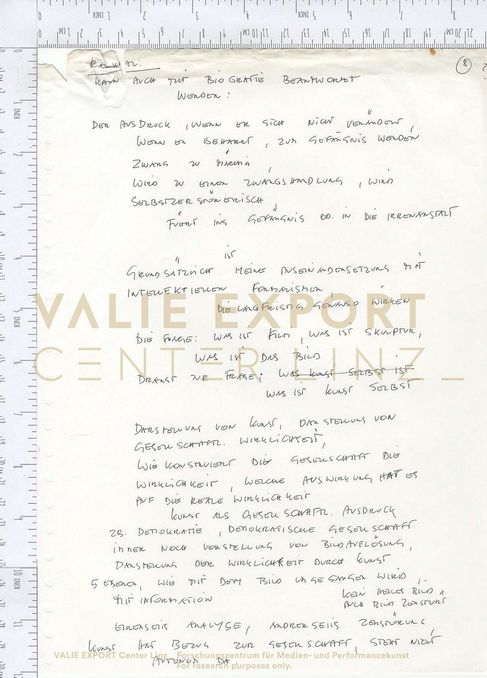 KANN AUCH MIT BIOGRAFIE BEANTWORTET
WERDEN:
DER AUSDRUCK, WENN ER SICH NICHT VERÄNDERT,
WENN ER BEHARRT, ZUM GEFÄNGNIS WERDEN
ZWANG ZU
WIRD ZU EINER ZWANGSHANDLUNG, WIRD
SELBSTZERSTÖRERISCH
FÜHRT INS GEFÄNGNIS OD. IN DIE IRRENANSTALT
IST
GRUNDSÄTZLICH MEINE AUSEINANDERSETZUNG MIT
INTELLEKTUELLEN FORMALISMEN,
DIE LANGFRISTIG GENAUSO WIRKEN
DIE FRAGE: WAS IST FILM, WAS IST SKULPTUR,
WAS IST DAS BILD
DRÄNGT ZUR FRAGE: WAS KUNST SELBST IST
WAS IST KUNST SELBST
DARSTELLUNG VON KUNST, DARSTELLUNG VON
GESELLSCHAFTL. WIRKLICHKEIT,
WIE KONSTRUIERT DIE GESELLSCHAFT DIE
WIRKLICHKEIT, WELCHE AUSWIRKUNG HAT ES
AUF DIE REALE WIRKLICHKEIT
KUNST ALS GESELLSCHAFTL. AUSDRUCK
ZB. DEMOKRATIE, DEMOKRATISCHE GESELLSCHAFT
IMMER NOCH VORSTELLUNG VON BILDAUFLÖSUNG,
DARSTELLUNG DER WIRKLICHKEIT DURCH KUNST
5 EBENEN, WIE MIT DEM BILD UMGEGANGEN WIRD,
MIT INFORMATION
KEIN HEILES BILD,
AUCH BILD ZERSTÖRT
EINERSEITS ANALYSE, ANDRERSEITS ZERSTÖRUNG
KUNST HAT BEZUG ZUR GESELLSCHAFT, STEHT NICHT
AUTONOM DA
VALIE EXPORT
CENTER LINZ_
VALIE EXPORT Center Linz_ Forschungszentrum für Medien- und Performancekunst
For research purposes only.